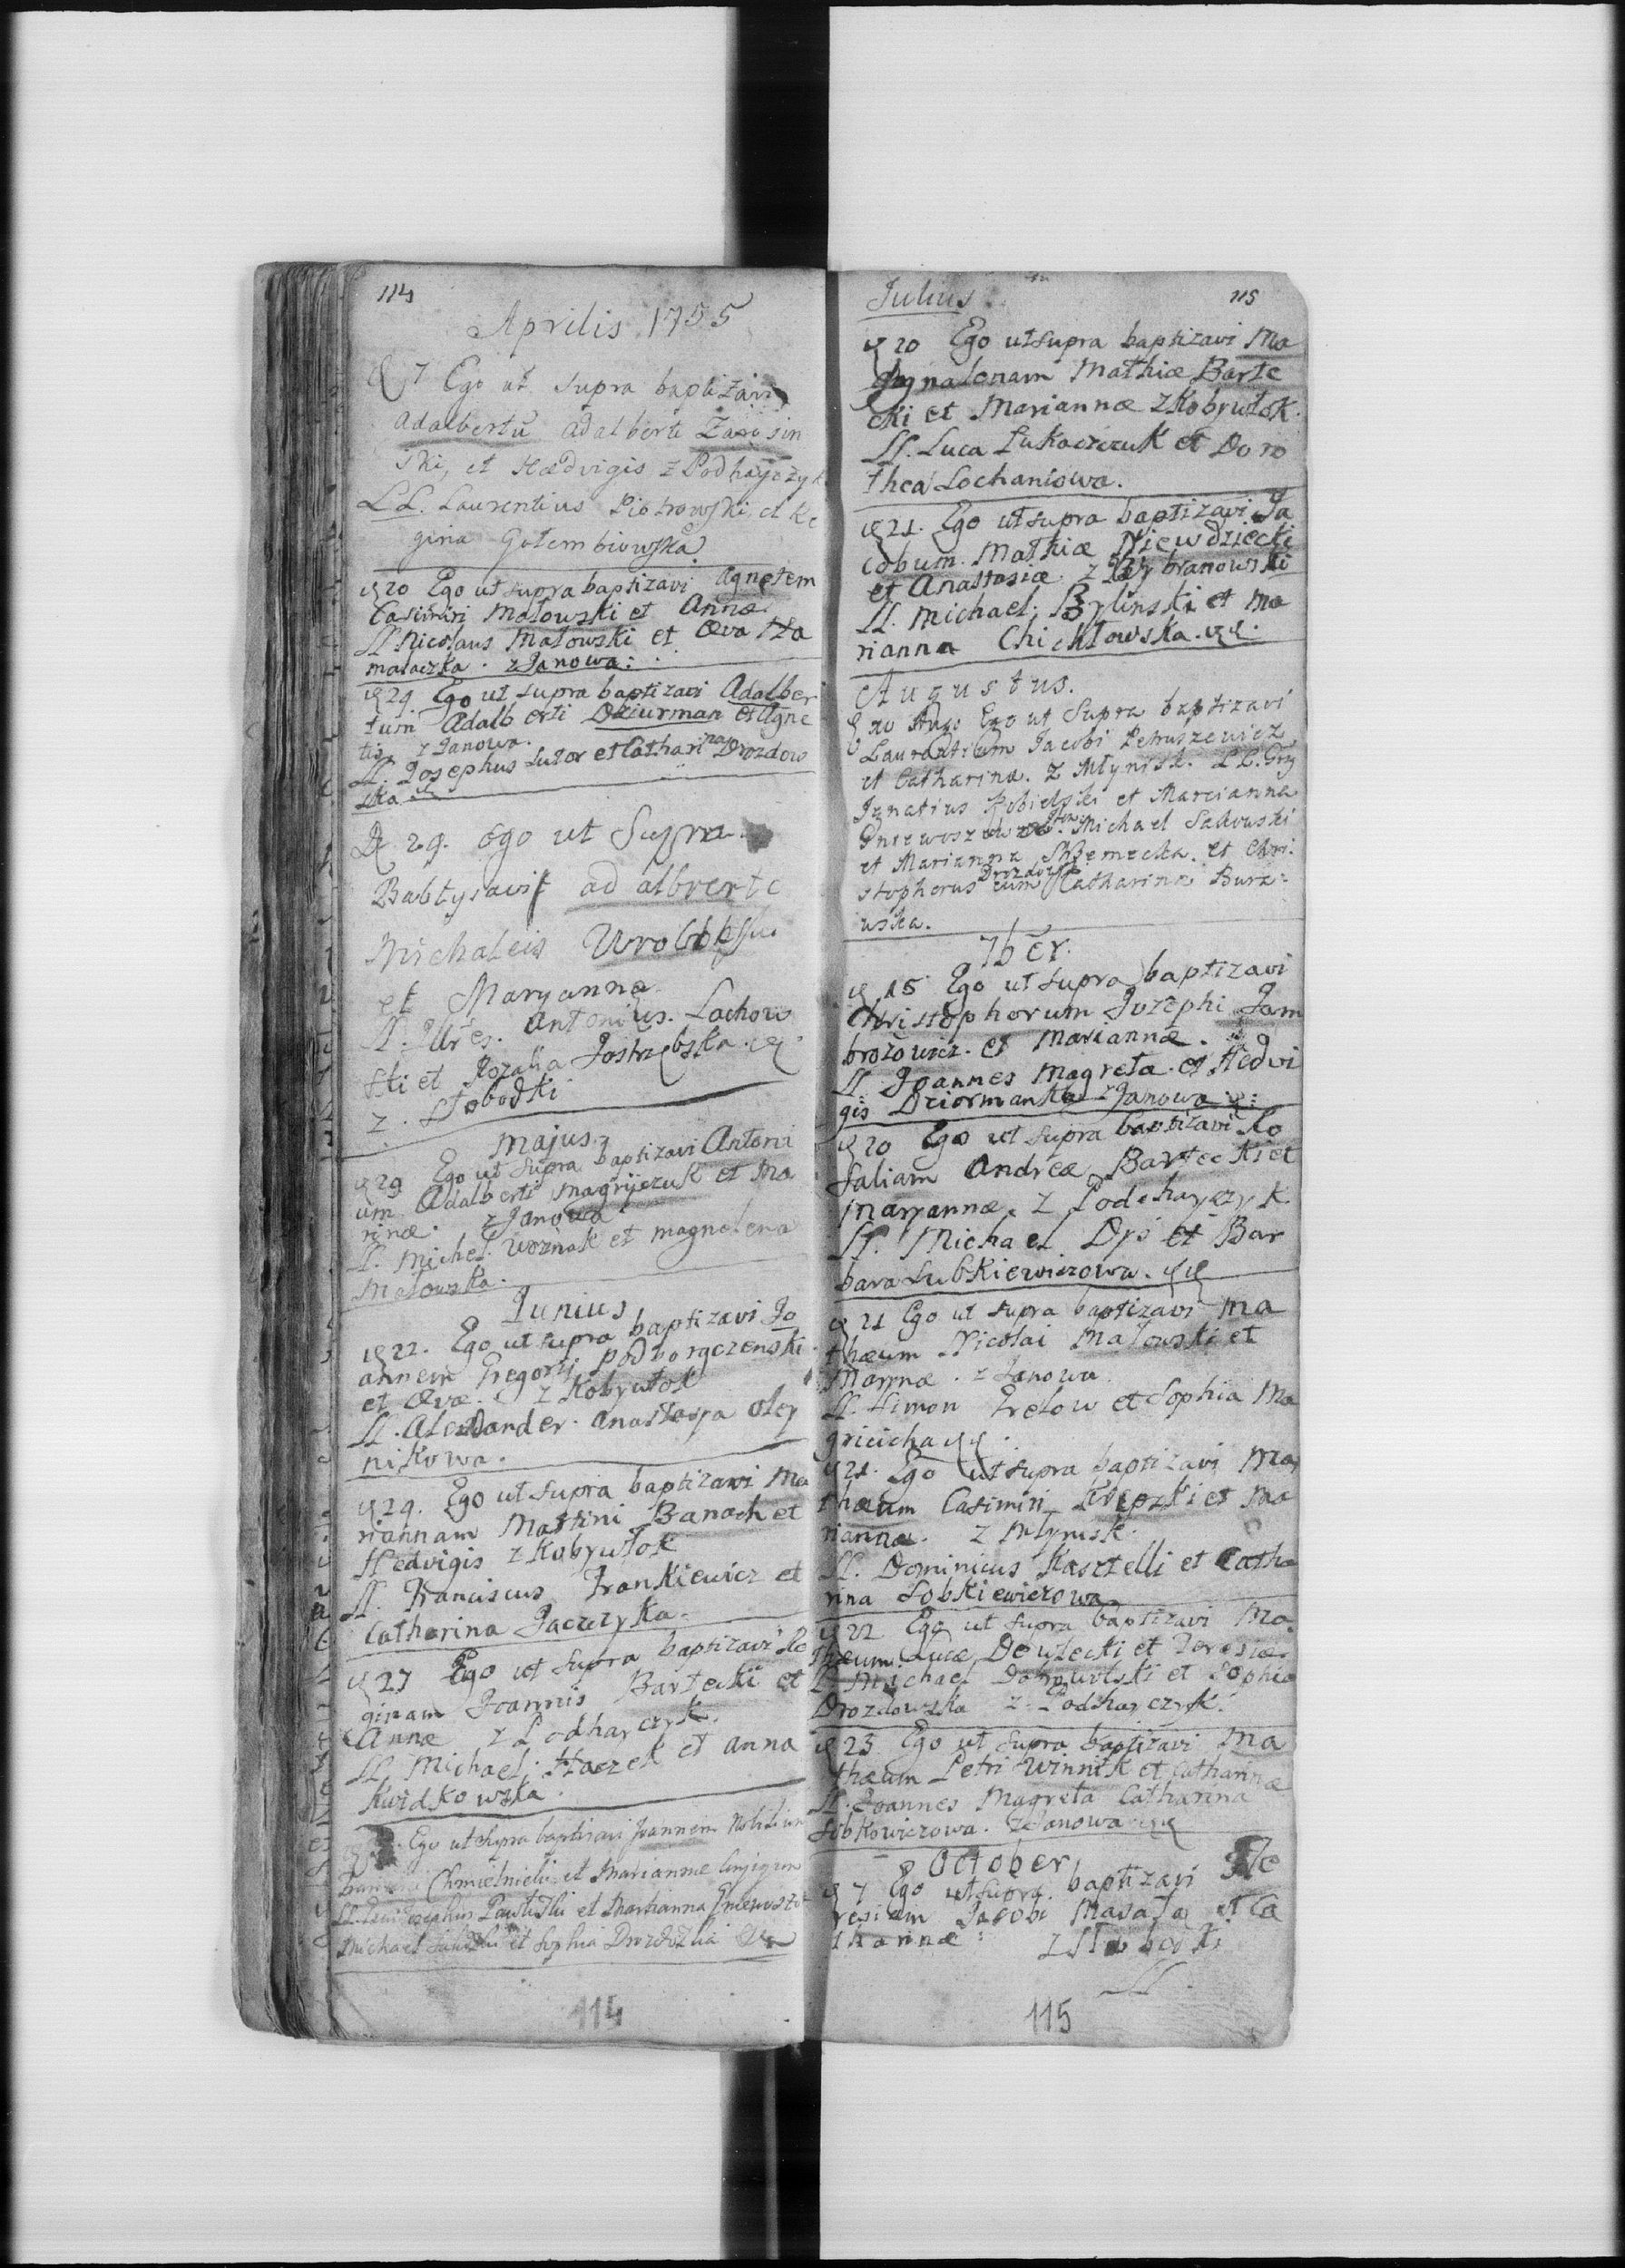 114
Aprilis 1755
7 Ego ut supra baptizavi
Adalbertū Adalberti
ski, et Hædvigis z Podhayczyk
LL. Laurentius Piotrowski et Re
gina Gołembiowska
20 Ego ut supra baptizavi Agnetem
Casimiri Małowski et Annæ
LL. Nicolaus Małowski et Æva
z Janowa:
29. Ego ut supra baptizavi Adalber
tum Adalberti Dziurman et Agne
tis z Janowa.
LL. Josephus Sutor et Catharina Drozdow
ska
D 29. Ego ut Supra
Babtysavit adalberte
Michaleis
et Maryanna
LL. Antonius Lachow
ski et Rozalia Jostrzębska
z Słobodki
Majus
29 Ego ut supra baptizavi Antoni
um Adalberti Magryczuk et Ma
rinæ. z Janowa
LL. Michel Woznak et Magnolena
Małowska.
Junius
22. Ego ut supra baptizavi Jo
annem Gregorij Podhoraczenski
et Ævæ. z Kobywłok
LL. Alexander. Anastasya Oley
nikowa.
29. Ego ut supra baptizavi Ma
riannam Martini Banach et
Hedvigis z Kobywłok
LL. Franciscus Frankiewicz et
Catharina Jaczczyka.
27 Ego ut supra baptizavi Re
ginam Joannis Bartecki et
Annæ z Podhayczyk.
LL. Michael Haczek et Anna
Kwidkowska.
Ego ut supra baptizavi Joannem Nobilium
Chmielnicki et Mariannæ
LL. Josephus Pawlitski et Martianna
Michael et Sophia Drozdozka
114
Julius
115
20 Ego ut supra baptizavi Ma
gnalenam Mathiæ Barte
cki et Mariannæ z Kobywłok.
LL. Luca Lukaszczuk et Doro
thea Lochaniowa.
21. Ego ut supra baptizavi Ja
cobum. Mathiæ Niewdziecki
et Anastasiæ z Wybranowski
LL. Michael Bylinski et Ma
rianna Chichłowska.
Augustus.
10 Aug: Ego ut Supra baptizavi
Laurentium Jacobi Petruszewicz
et Catharinæ. z Młynisk. LL. Grg
Ignatius Kobielski et Marcianna
Michael Sadowski
et Marianna Et Chri:
stopherus Drozdowski cum Catharina Burz:
wska.
7bēr.
15 Ego ut supra baptizavi
Christophorum Jozephi Jam
brozowicz. et Mariannæ.
LL. Joannes Magreta. et Hedvi
gis Dziormanka z Janowa
20 Ego ut supra baptizavi Ro
saliam Andreæ Bartecki et
Maryannæ. z Podchayczyk.
LL. Michael Dys et Bar
bara Subkiewiczowa.
21 Ego ut supra baptizavi Ma
thæum Nicolai Małowski et
Marynæ. z Janowa.
LL. Simon Trelow et Sophia Ma
gricicha
21. Ego ut supra baptizavi Ma
thæum Casimiri et Ma
riannæ. z Młynisk.
LL. Dominicus Kasztelli et Catha
rina Sobkiewiczowa
22 Ego ut supra baptizavi Ma
thæum Lucæ et Teresiæ.
LL. Michael et Sophia
Drozdowska z Podhayczyk.
23 Ego ut supra baptizavi Ma
thæum Petri Winnik et Catharinæ
LL. Joannes Magreta Catharina
Sobkowiczowa. z Janowa
October
7 Ego ut supra baptizavi Te
resiam Jacobi Masata et Ca
tharinæ: z Słobodki
LL.
115